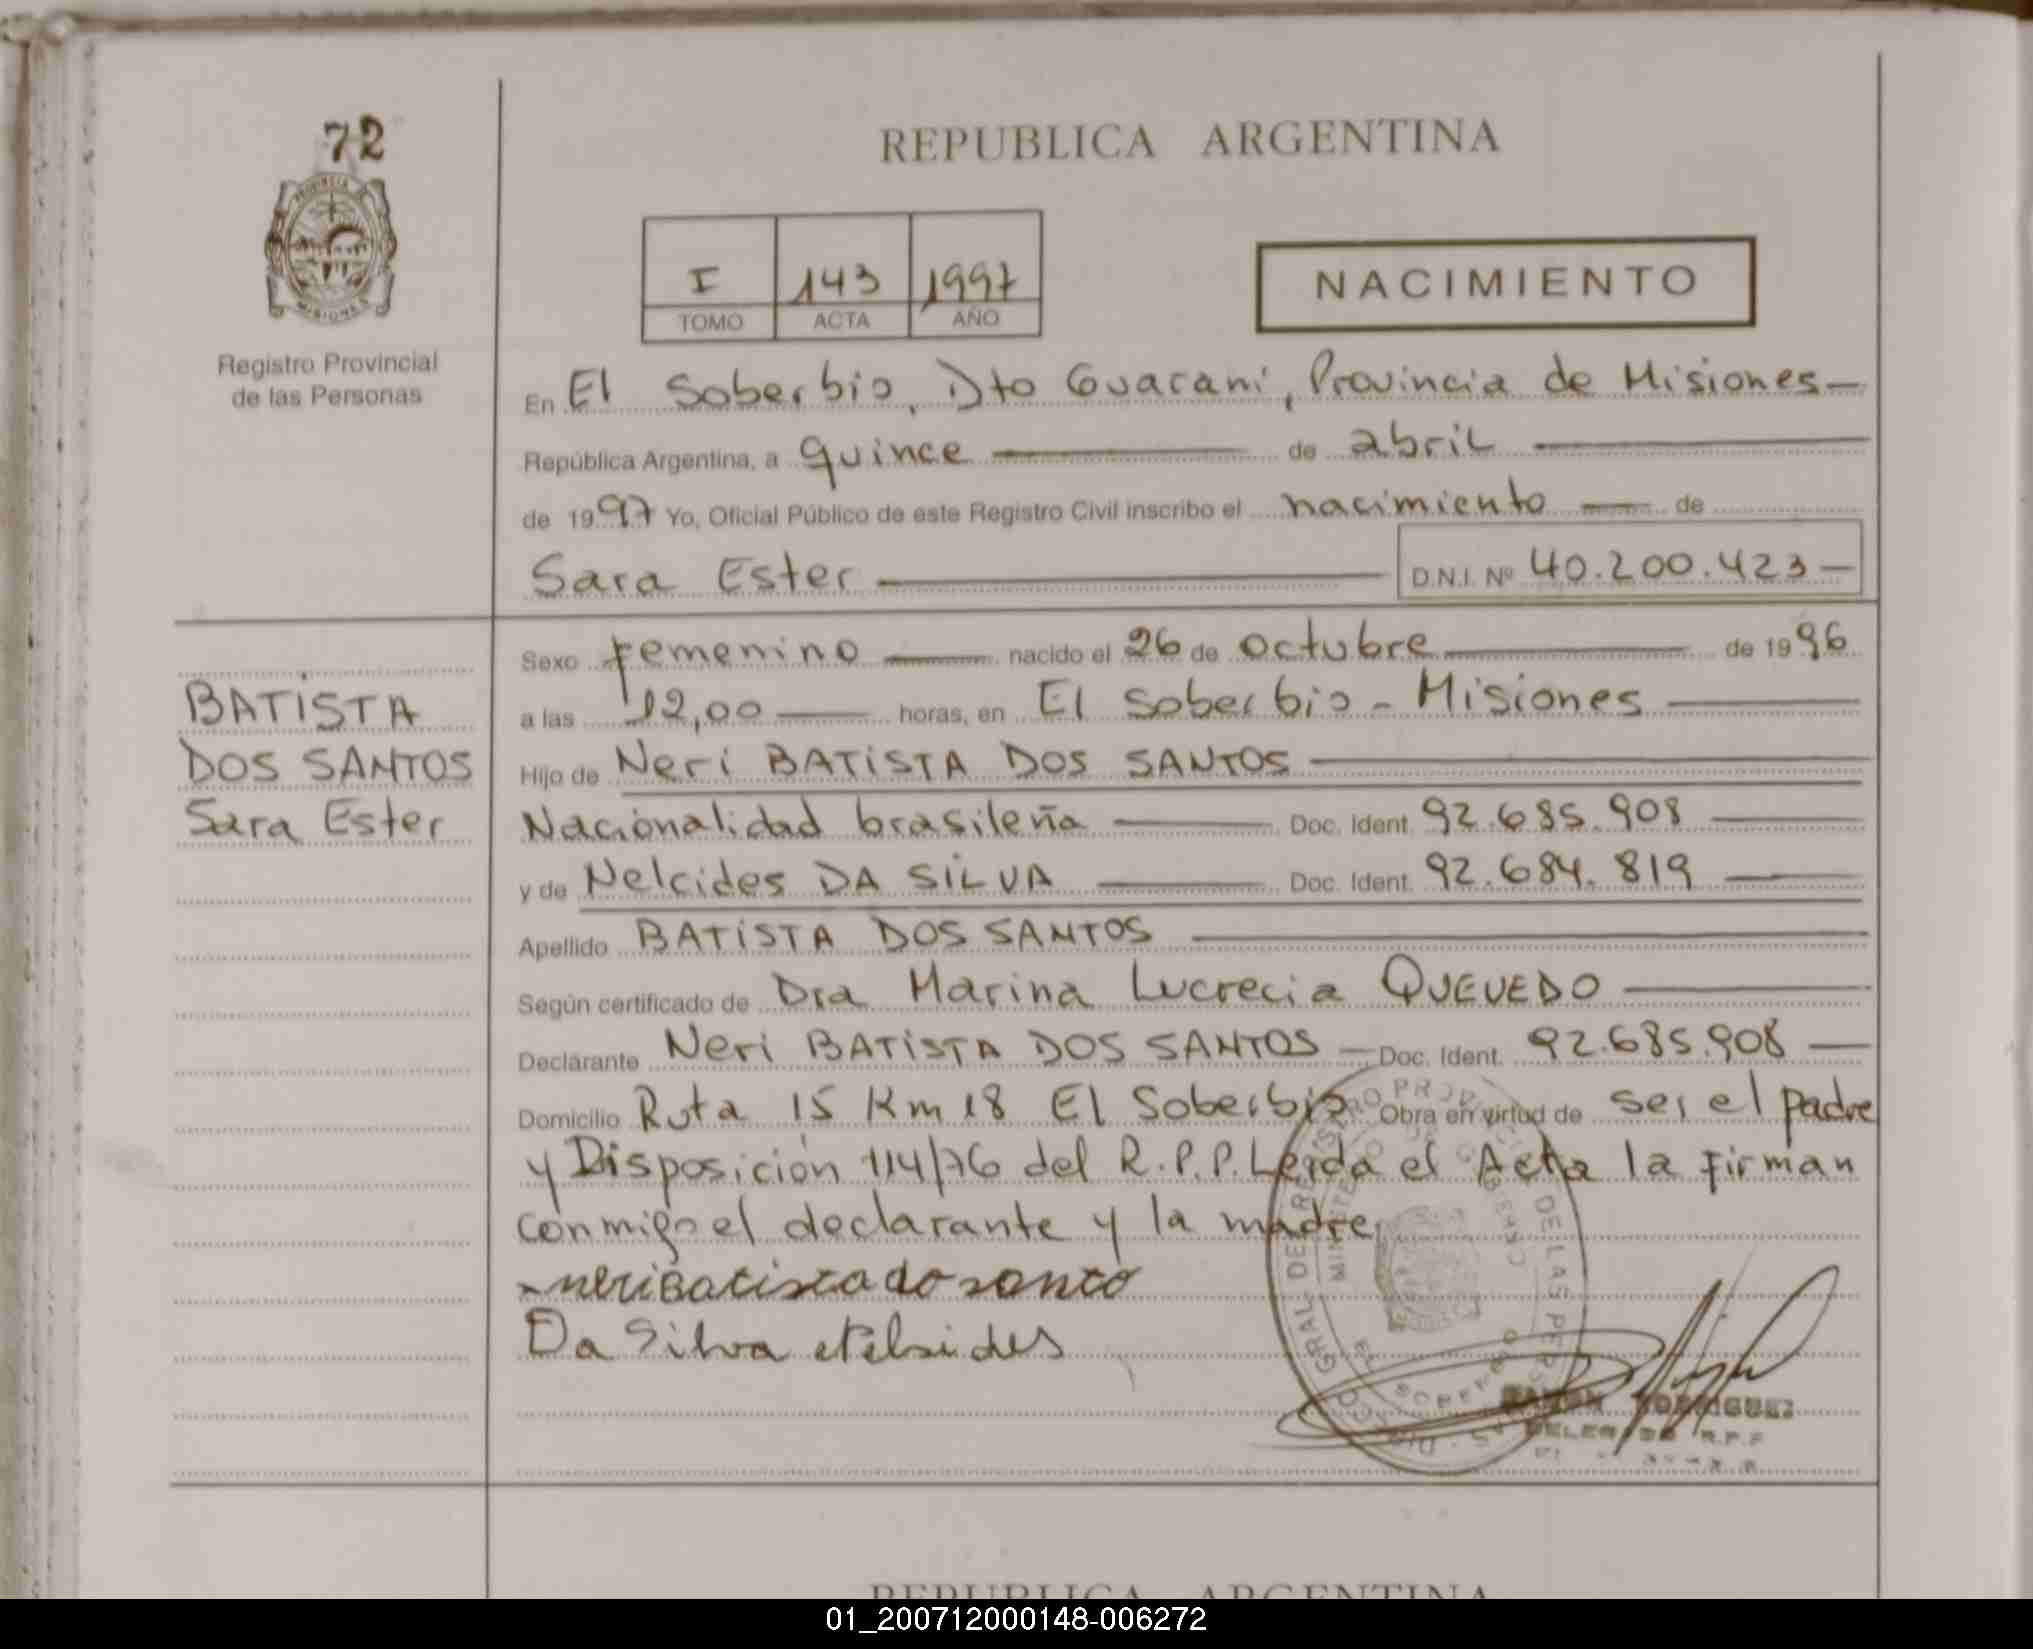 72
PROVINCIA
MISIONES
Registro Provincial
de las Personas
REPUBLICA ARGENTINA
I 143 1997
TOMO ACTA AÑO
NACIMIENTO
En El Soberbio, Dto Guaraní, Provincia de Misiones—
República Argentina, a quince — de abril —
de 1997 Yo, Oficial Público de este Registro Civil inscribo el nacimiento — de
Sara Ester — D.N.I. Nº 40.200.423—
Sexo femenino — nacido el 26 de octubre — de 1996
a las 12,00 — horas, en El Soberbio - Misiones —
Hijo de Neri BATISTA DOS SANTOS —
Nacionalidad brasileña — Doc. Ident. 92.685.908 —
y de Nelcides DA SILVA — Doc. Ident. 92.684.819 —
Apellido BATISTA DOS SANTOS —
Según certificado de Dra Marina Lucrecia QUEVEDO —
Declarante Neri BATISTA DOS SANTOS — Doc. Ident. 92.685.908 —
Domicilio Ruta 15 Km 18 El Soberbio Obra en virtud de ser el padre
y Disposición 114/76 del R.P.P. Leída el Acta la firman
conmigo el declarante y la madre,
neri Batista do santo
Da Silva Nelsides
BATISTA
DOS SANTOS
Sara Ester
RODRIGUEZ
DELEGADO R.P.P
REPUBLICA ARGENTINA
01_200712000148-006272